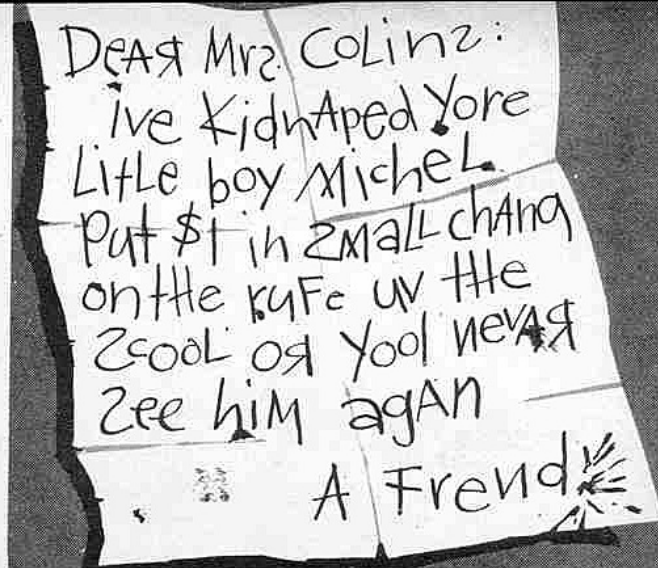 DeAR Mrs. Colins:
ive Kidnaped Yore
Litle boy Michel.
Put $1 in SMall chAng
on tHe rufe uv tHe
ScooL oR Yool nevAR
See hiM agAn
A Frend